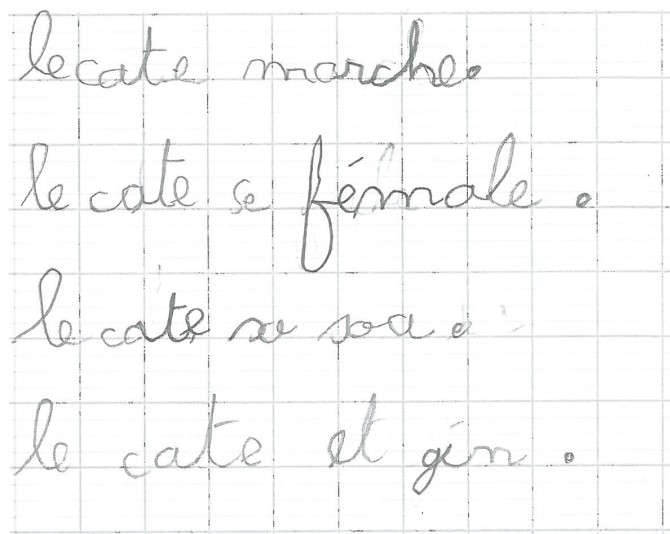 lecate marche.
le cate se fémale.
le cate se soa.
le cate et gin.